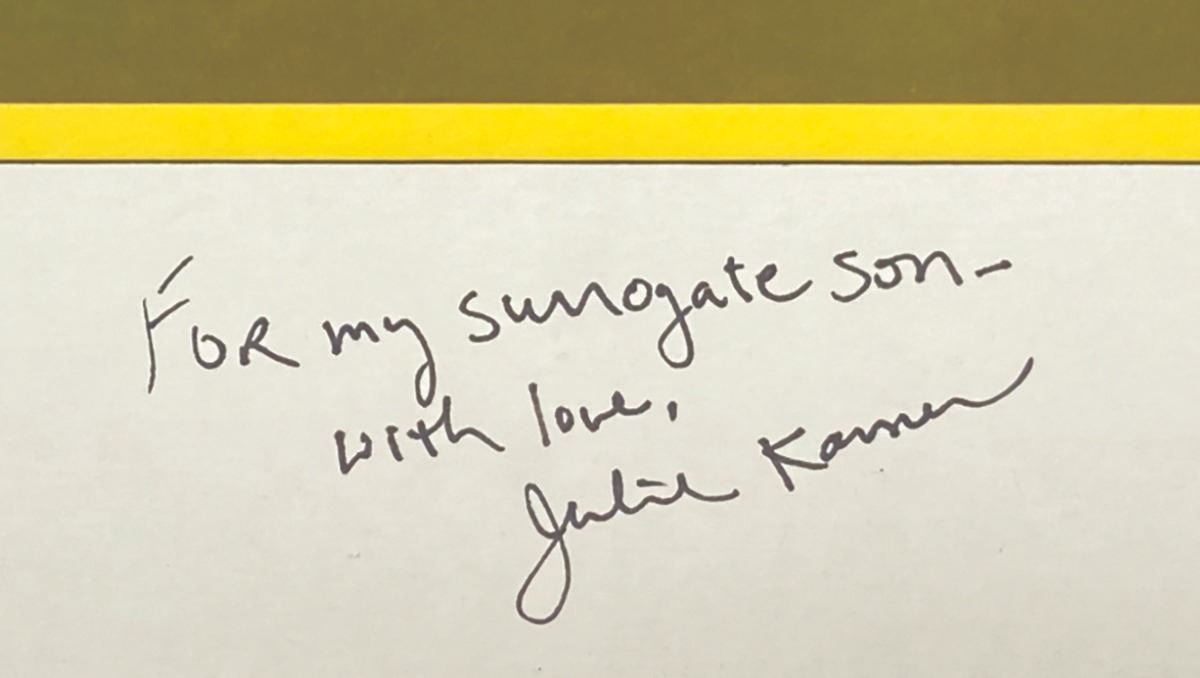 For my surrogate son–
with love,
Julie